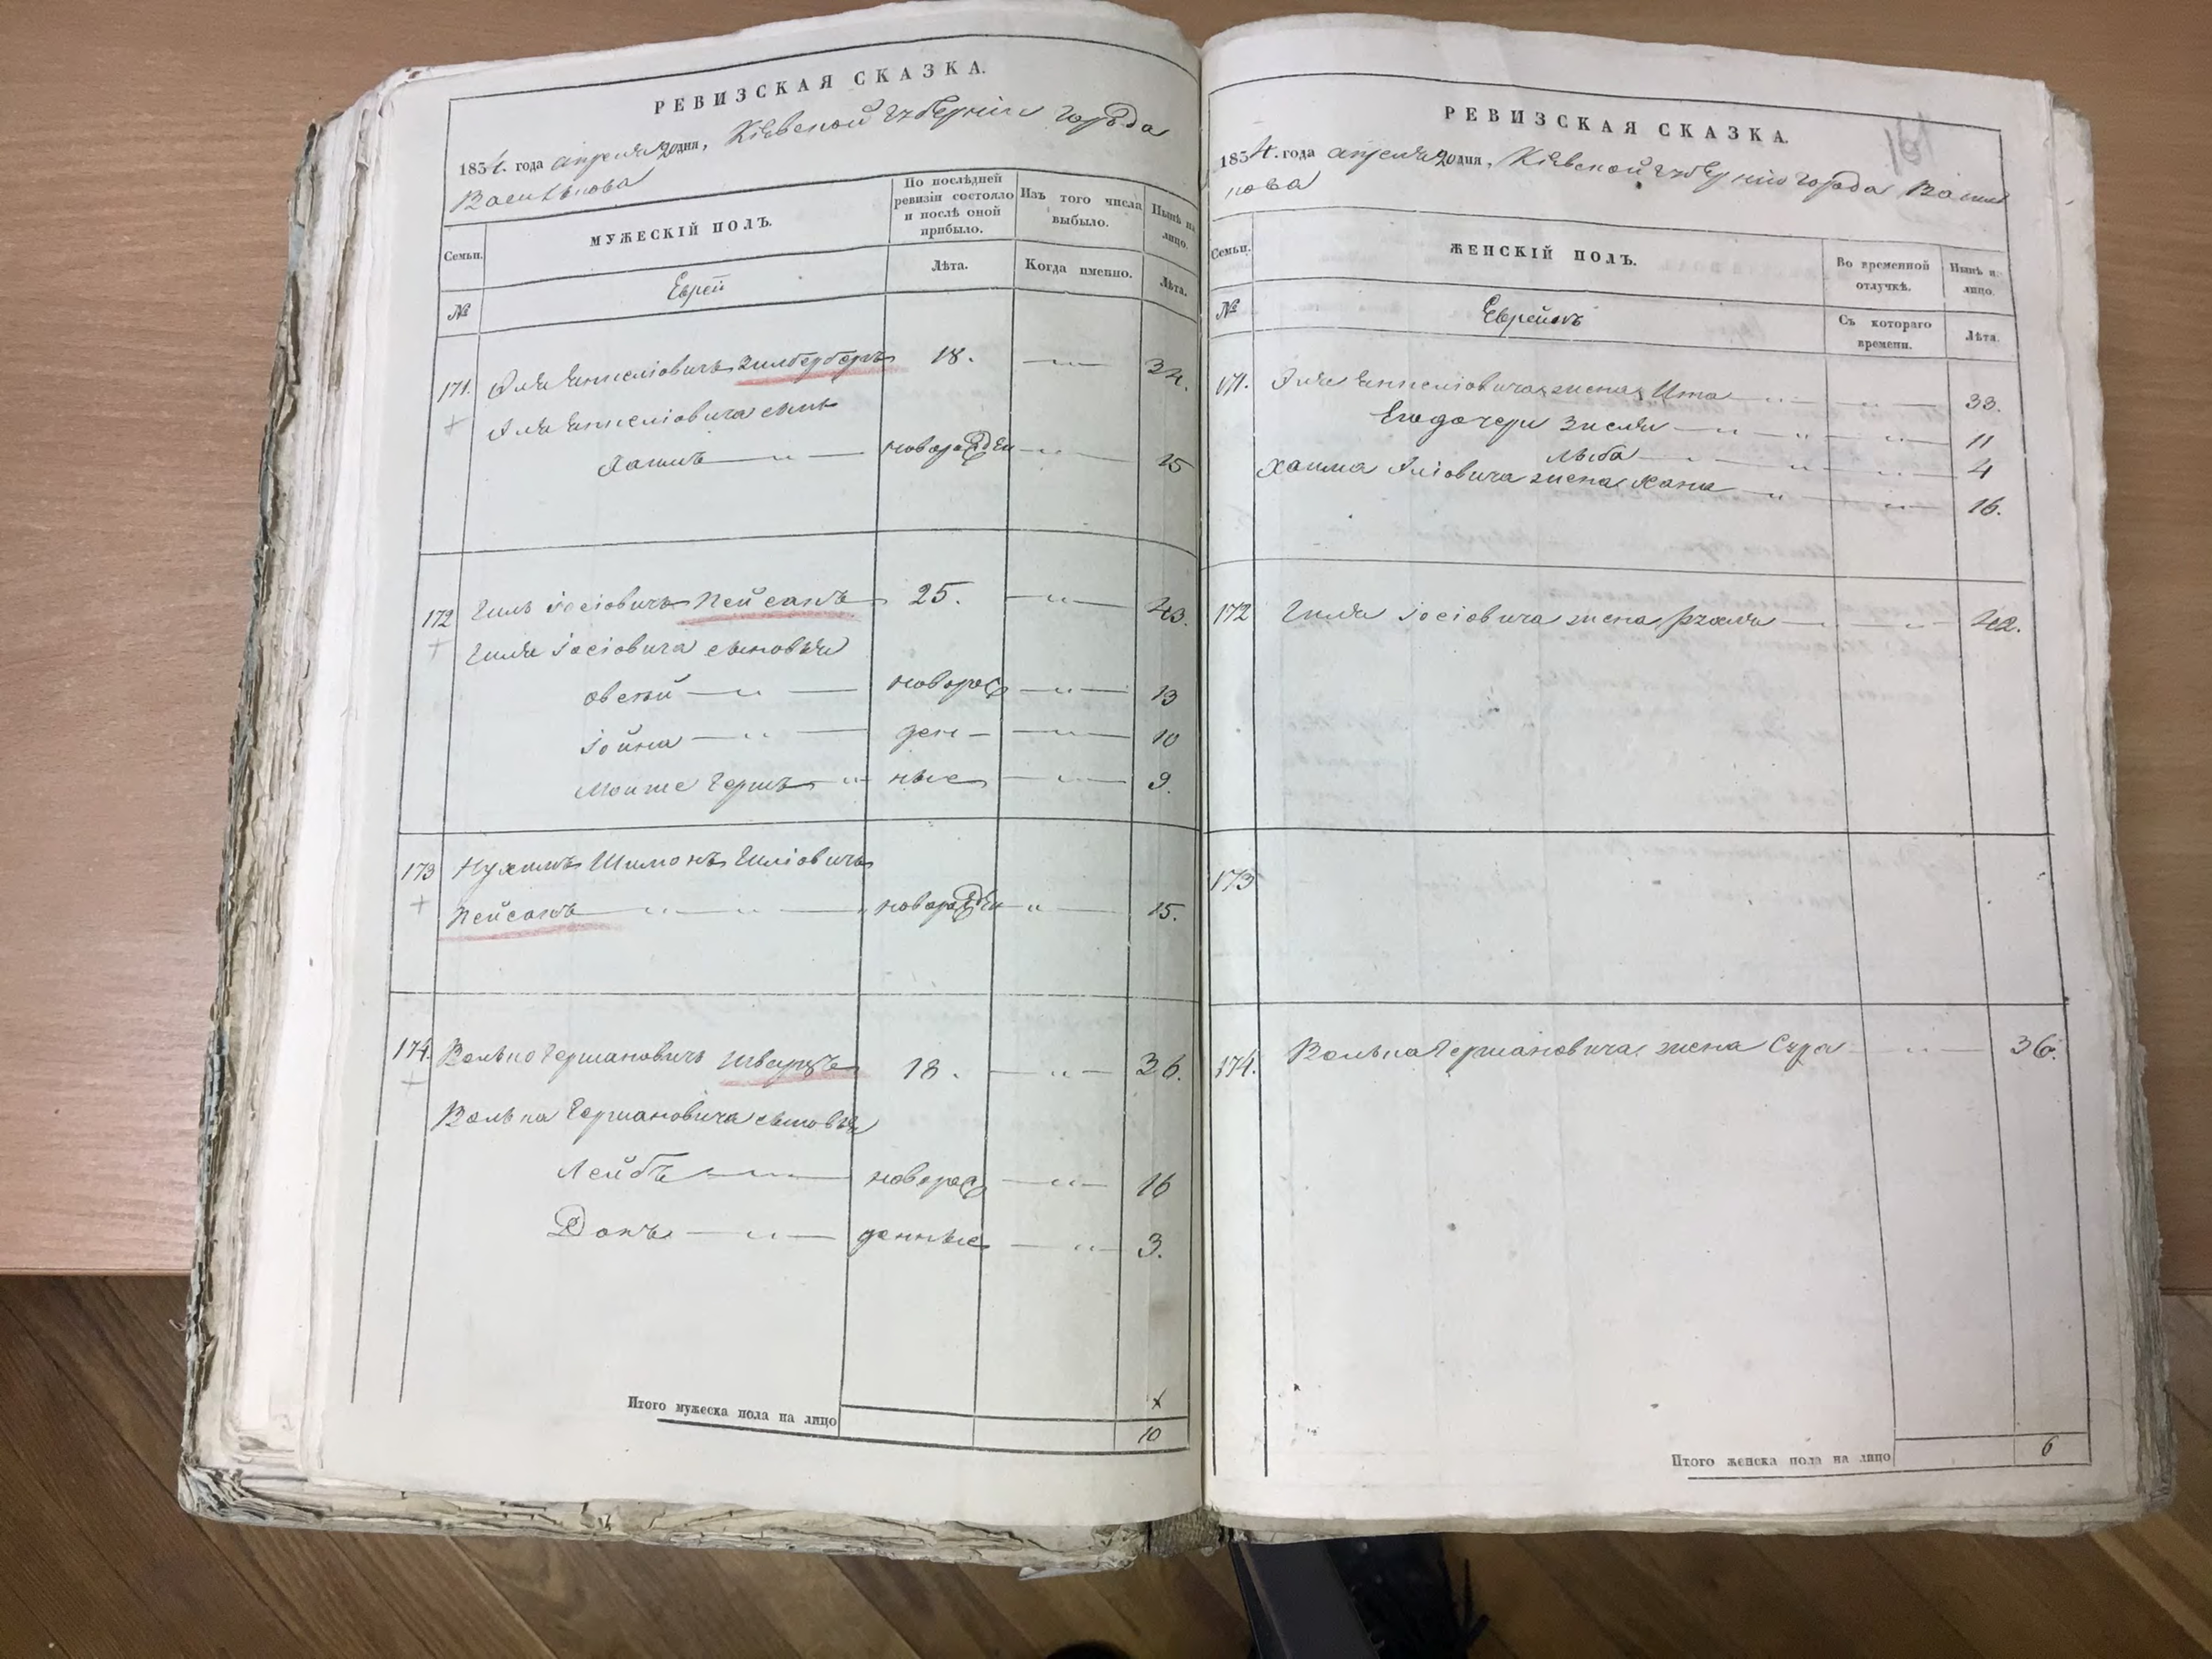 РЕВИЗСКАЯ СКАЗКА.
1854. года апреля 20 дня, Кіевской губерніи города
Василькова
Семьи.
МУЖЕСКІЙ ПОЛЪ.
По послѣдней ревизіи состояло и послѣ оной прибыло.
Изъ того числа выбыло.
Нынѣ на лицо.
№
Еврей
Лѣта.
Когда именно.
Лѣта.
171. Зилбербергъ 18. — 34.
сынъ
Хаимъ — " — новорожден — " — 15
172 Гиль Іосіовичъ Пейсахъ 25. — " — 43.
Гиля Іосіовича сыновья
Овсѣй — " — новорож — " — 13
Іойна — " — ден — — " — 10
Мошке Гершъ — " — ные — " — 9.
173 Нухимъ Шимонъ Гиліовичъ
Пейсахъ — " — " — " новорожден " — 15.
174. Волько Германовичъ Шварцъ 18. — " — 36.
Волька Германовича сыновья
Лейбъ — новорож — " — 16
Донъ — " — денные — " — 3.
Итого мужеска пола на лицо
10
РЕВИЗСКАЯ СКАЗКА.
1854. года апреля 20 дня, Кіевской губерніи города Василь
кова
Семьи.
ЖЕНСКІЙ ПОЛЪ.
Во временной отлучкѣ.
Нынѣ на лицо.
№
Съ котораго времени.
Лѣта.
171. жена Ита — " — " — 33.
Его дочери Зисля — " — " — " — 11
Лыба — " — " — 4
Хаима жена Хана — " — " — 16.
172 Гиля Іосіовича жена Рухля — " — 42.
173
174. Волька Германовича жена Сура — " — 36.
Итого женска пола на лицо
6